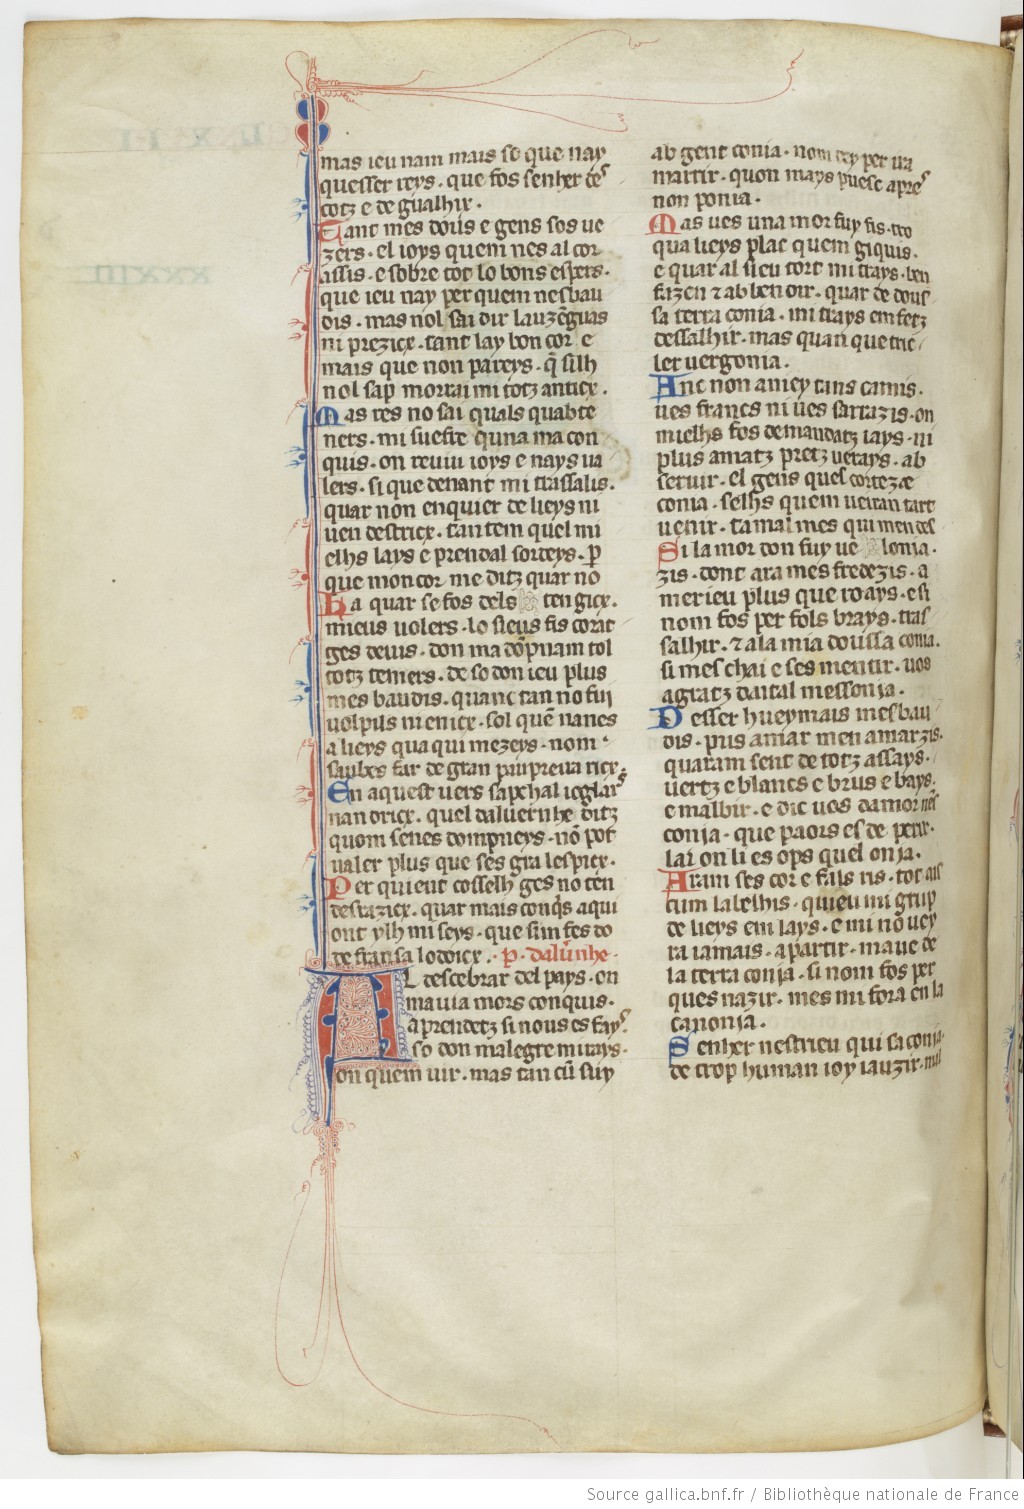 mas ieu nam mais so que nay
quesser reys. que fos senher de
totz e de gualhir.
Tant mes dous e gens sos ue
zers. el ioys quem nes al cor
assis. e sobre tot lo bons espers.
que ieu nay per quem nesbau
dis. mas nol sai dir lauzēguas
ni prezicx. tant lay bon cor e
mais que non pareys. q̄ silh
nol sap morrai mi totz anticx.
Mas res no sai quals quabte
ners. mi suefre quna ma con
quis. on reuiu ioys e nays ua
lers. si que denant mi trassalis.
quar non enquier de lieys ni
uen destricx. tan tem quel mi
elhs lays e prendal sordeys. p
que mon cor me ditz quar no
Ha quar se fos dels ten gicx.
mieus uolers. lo sieus fis corat
ges deuis. don ma dōpnam tol
totz temers. de so don ieu plus
mes baudis. quanc tan no fuj
uolpus ni enicx. sol quē nanes
a lieys qua qui mezeys. nom
saubes far de gran pau preu a ricx.
En aquest uers sapchal ioglars
nan oricx. quel daluernhe ditz
quom senes dompneys. nō pot
ualer plus que ses gra lespicx.
Per qui eut cosselh ges no ten
desrazicx. quar mais conq̄s aqui
ont ylh mi seys. que sim fes do
de fransa lodoicx. p. dalunhe.
AL descebrar del pays. on
mauia mors conquis.
aprendetz si nous es fays
so don malegre mirays.
on quem uir. mas tan cū suy
ab gent conia. nom rey per ua
martir. quon mays puesc apres
non ponia.
Mas ues una mor fuy fis. tro
qua lieys plac quem giquis.
e quar al sieu tort mi trays. ben
fazen & ab ben dir. quar de dous
sa terra conia. mi trays em fetz
dessalhir. mas quan que tric
ler uergonia.
Anc non amey tans camis.
ues francs ni ues sarrazis. on
mielhs fos demandatz iays. ni
plus amatz pretz uerays. ab
seruir. el gens ques cortez e
conia. selhs quem ueiran tart
uenir. ta mal mes qui men des
Si la mor don fuy ue lonia.
zis. dont ara mes fredezis. a
mer ieu plus que roays. e si
nom fos per fols brays. tras
salhir. & a la mia doussa conia.
si mes chai e ses mentir. uos
agratz daital messonia.
Desser hueymais mes bau
dis. pus amar men amarzis.
quaram sent de totz assays.
uertz e blancs e brus e bays.
e malbir. e dic uos damor nes
conia. que paors es de perir.
lai on li es ops quel onia.
Aram ses cor e fals ris. tot ais
cum labelhis. quieu mi grup
de lieys em lays. e mi no uey
ra iamais. a partir. maue de
la terra conia. si nom fos per
ques nazir. mes mi fora en la
canonia.
Senher nestrieu qui sa conia.
de trop human ioy iauzir. mal
Source gallica.bnf.fr / Bibliothèque nationale de France